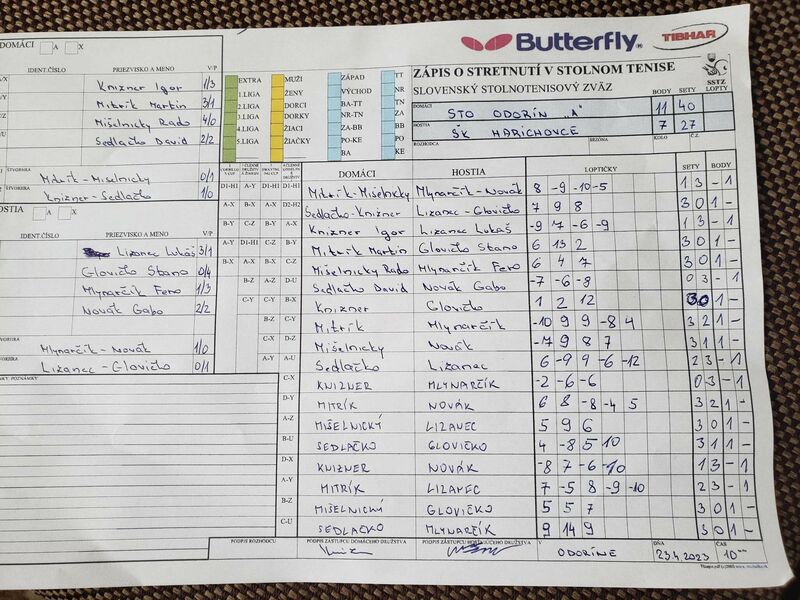 Butterfly
TIBHAR
ZÁPIS O STRETNUTÍ V STOLNOM TENISE
SLOVENSKÝ STOLNOTENISOVÝ ZVÄZ
SSTZ
BODY SETY LOPTY
DOMÁCI STO ODORÍN „A" 11 40
HOSTIA ŠK HARICHOVCE 7 27
ROZHODCA SEZÓNA KOLO Č.Z.
DOMÁCI A X
IDENT.ČÍSLO PRIEZVISKO A MENO V/P
Knizner Igor 1/3
Mitrík Martin 3/1
Mišelnicky Rado 4/0
Sedlačko David 2/2
ŠTVORHRA
Mitrík-Mišelnicky 0/1
ŠTVORHRA
Knizner-Sedlačko 1/0
HOSTIA A X
IDENT.ČÍSLO PRIEZVISKO A MENO V/P
Lizanec Lukáš 3/1
Glovičko Stano 0/4
Mlynarčík Fero 1/3
Novák Gabo 2/2
Mlynarčík-Novák 1/0
Lizanec-Glovičko 0/1
POZNÁMKY
EXTRA MUŽI ZÁPAD TT
1.LIGA ŽENY VÝCHOD NR
2.LIGA DORCI BA-TT TN
3.LIGA DORKY NR-TN ZA
4.LIGA ŽIACI ZA-BB BB
5.LIGA ŽIAČKY PO-KE PO
BA KE
DOMÁCI HOSTIA LOPTIČKY SETY BODY
D1-H1 A-Y D1-H1 D1-H1 Mitrík-Mišelnicky Mlynarčík-Novák 8 -9 -10 -5 1 3 - 1
A-X B-X A-X D2-H2 Sedlačko-Knizner Lizanec-Glovičko 7 9 8 3 0 1 -
B-Y C-Z B-Y A-X Knizner Igor Lizanec Lukáš -9 7 -6 -9 1 3 - 1
A-Y D1-H1 C-Z B-Y Mitrík Martin Glovičko Stano 6 13 2 3 0 1 -
B-X A-X B-X C-Z Mišelnicky Rado Mlynarčík Fero 6 4 7 3 0 1 -
B-Z A-Z D-U Sedlačko David Novák Gabo -7 -6 -8 0 3 - 1
C-Y C-Y B-X Knizner Glovičko 1 2 12 3 0 1 -
B-Z C-Y Mitrík Mlynarčík -10 9 9 -8 4 3 2 1 -
C-X D-Z Mišelnicky Novák -7 9 8 7 3 1 1 -
A-Y A-U Sedlačko Lizanec 6 -9 9 -6 -12 2 3 - 1
C-X KNIZNER MLYNARČÍK -2 -6 -6 0 3 - 1
D-Y MITRÍK NOVÁK 6 8 -8 -4 5 3 2 1 -
A-Z MIŠELNICKÝ LIZANEC 5 9 6 3 0 1 -
B-U SEDLAČKO GLOVIČKO 4 -8 5 10 3 1 1 -
D-X KNIZNER NOVÁK -8 7 -6 -10 1 3 - 1
A-Y MITRÍK LIZANEC 7 -5 8 -9 -10 2 3 - 1
B-Z MIŠELNICKÝ GLOVIČKO 5 5 7 3 0 1 -
C-U SEDLAČKO MLYNARČÍK 9 14 9 3 0 1 -
PODPIS ROZHODCU PODPIS ZÁSTUPCU DOMÁCEHO DRUŽSTVA PODPIS ZÁSTUPCU HOSŤUJÚCEHO DRUŽSTVA V ODORÍNE DŇA 23.4.2023 ČAS 10